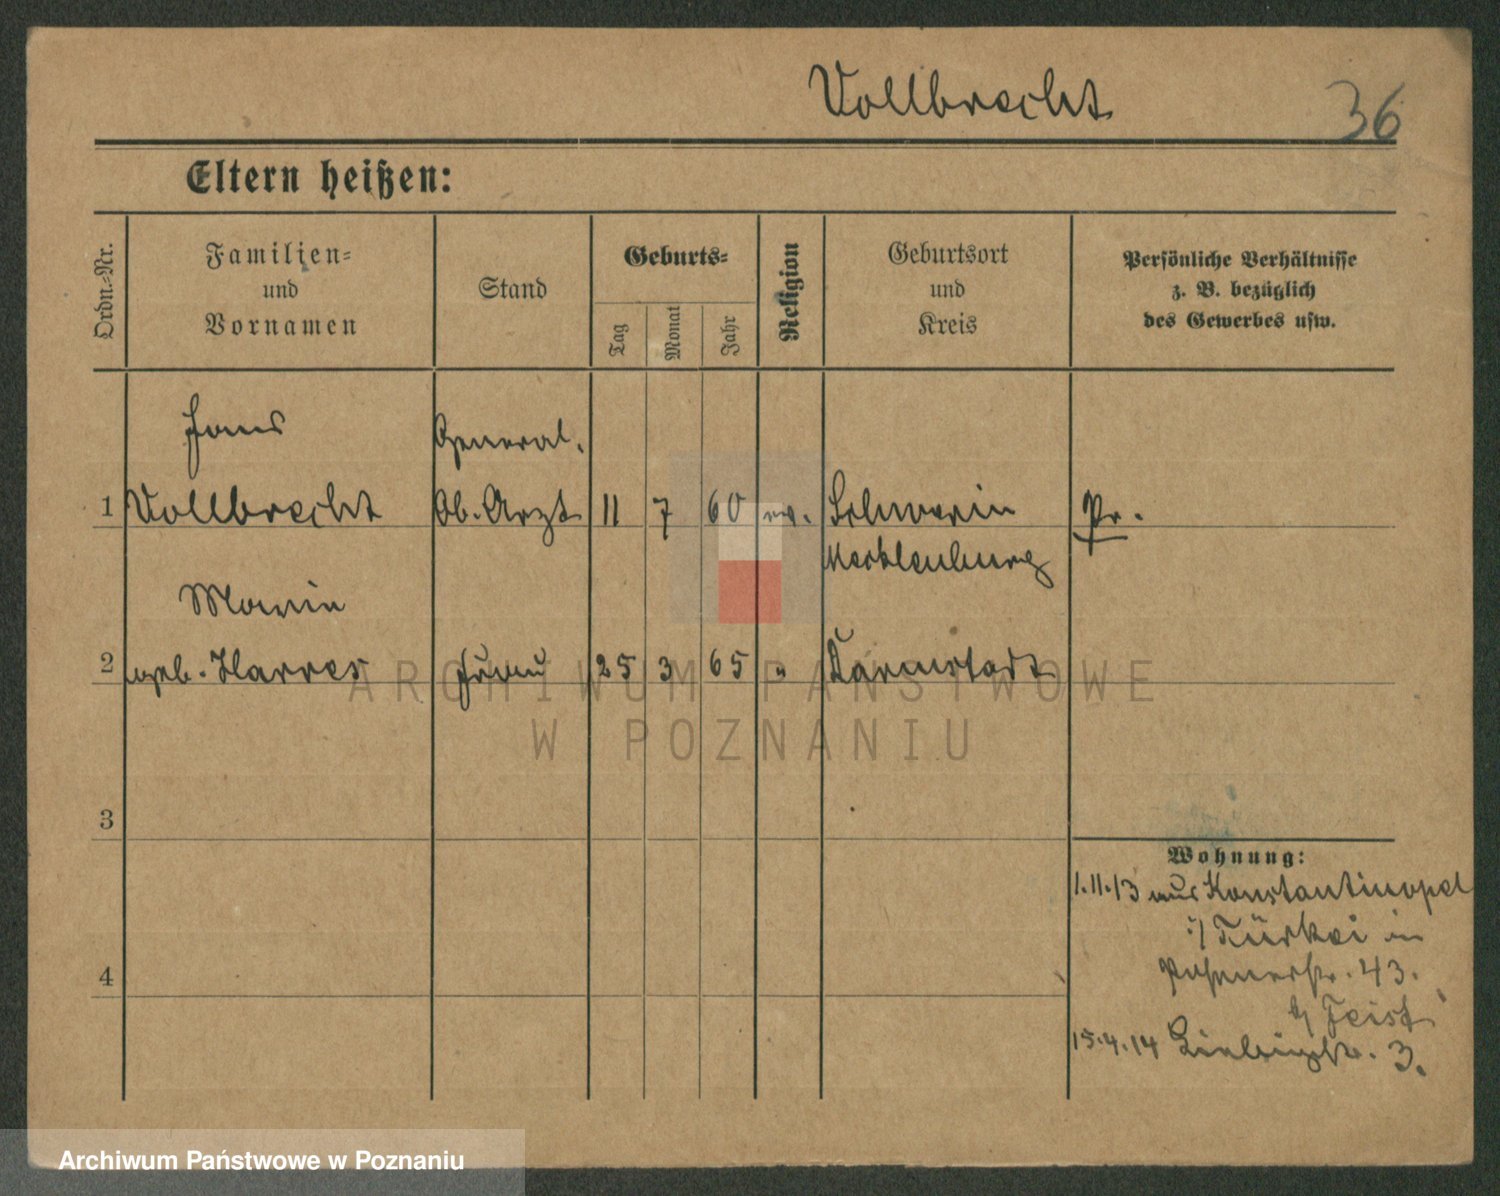 Vollbrecht
36
Eltern heißen:
Ordn.-Nr.
Familien-
und
Vornamen
Stand
Geburts-
Tag
Monat
Jahr
Religion
Geburtsort
und
Kreis
Persönliche Verhältnisse
z. B. bezüglich
des Gewerbes usw.
Hans
General.
1 Vollbrecht Ob. Arzt 11 7 60 ev. Schwerin Pr.
Mecklenburg
Marie
2 geb. Harres Frau 25 3 65 " Darmstadt
ARCHIWUM PAŃSTWOWE
W POZNANIU
3
Wohnung:
1.11.13 aus Konstantinopel
i/ Türkei in
Posenerstr. 43.
b/ Feist
4
15.4.14 Liebigstr. 3.
Archiwum Państwowe w Poznaniu